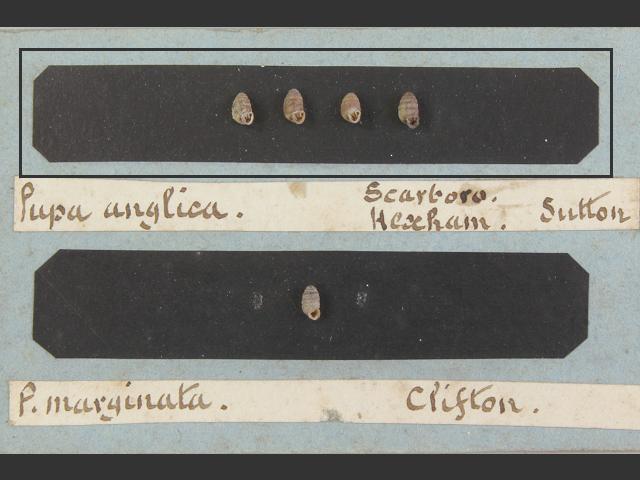 Pupa anglica. Scarboro.
Hexham. Sutton
P. marginata. Clifton.